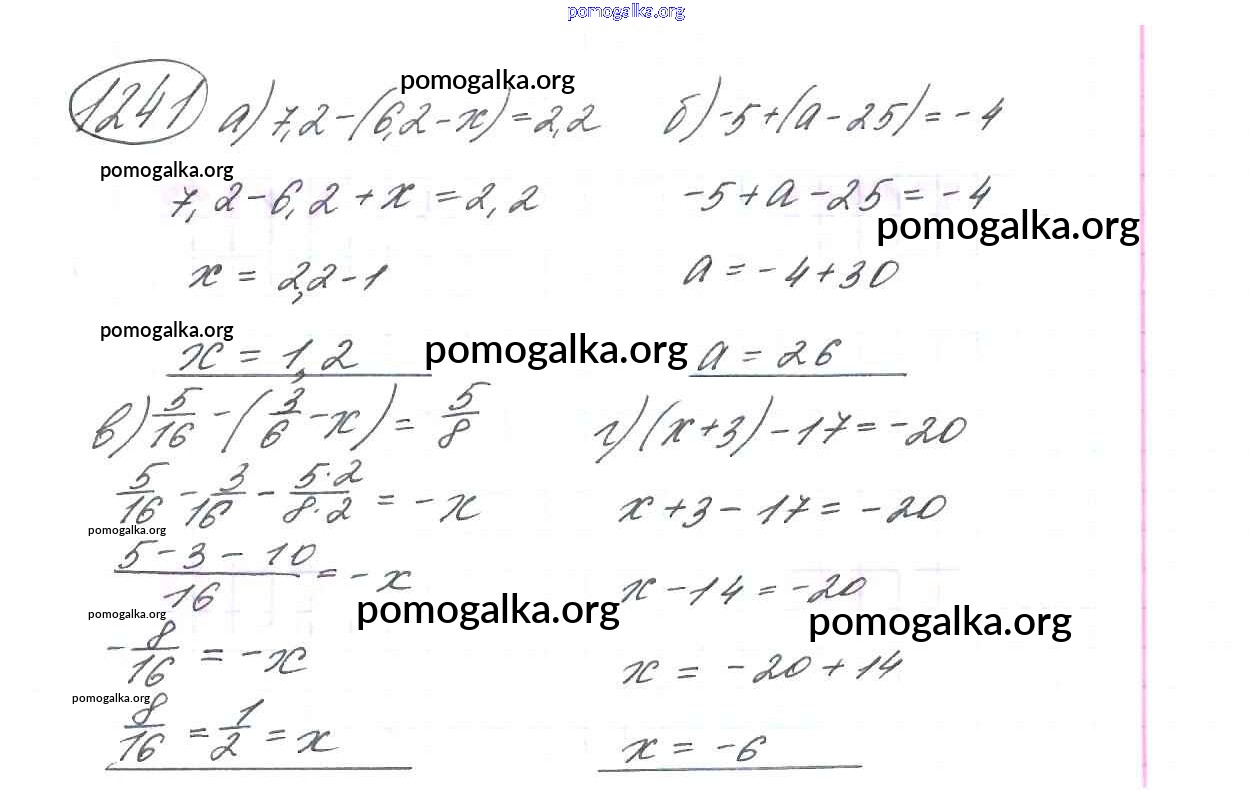 pomogalka.org
1241 а) 7,2-(6,2-x)=2,2 б) -5+(a-25)=-4
pomogalka.org
pomogalka.org
7,2-6,2+x=2,2 -5+a-25=-4
pomogalka.org
x=2,2-1 a=-4+30
pomogalka.org
x=1,2 a=26
pomogalka.org
в) 5/16-(3/6-x)=5/8 г) (x+3)-17=-20
5/16-3/16-5·2/8·2=-x x+3-17=-20
pomogalka.org
5-3-10/16=-x x-14=-20
pomogalka.org
pomogalka.org
pomogalka.org
-8/16=-x x=-20+14
pomogalka.org
8/16=1/2=x x=-6